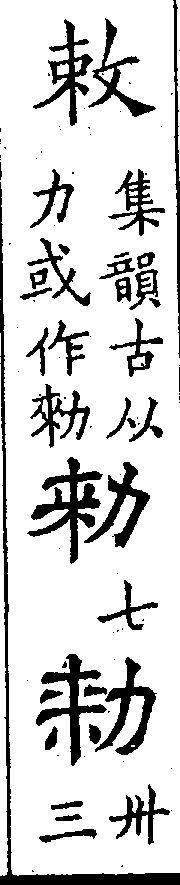 敕
集韻古从
力或作勑
勑
七
卅
三